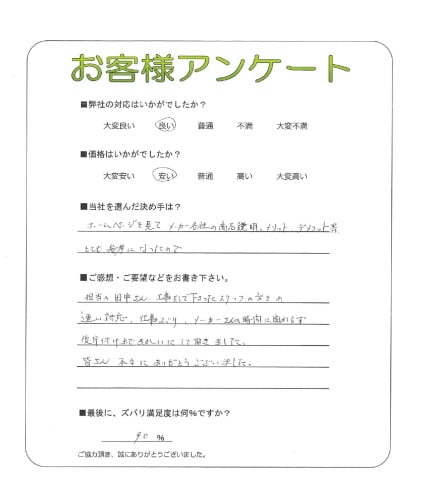 お客様アンケート
■弊社の対応はいかがでしたか？
大変良い 良い 普通 不満 大変不満
■価格はいかがでしたか？
大変安い 安い 普通 高い 大変高い
■当社を選んだ決め手は？
ホームページを見て メーカー各社の商品説明、メリット、デメリット等
とても参考になったので
■ご感想・ご要望などをお書き下さい。
担当の田中さん、工事をして下さったスタッフの方々の
速い対応、仕事ぶり、メーカーさんの時間に
後片付けまできれいにして頂きまして、
皆さん 本当にありがとうございました。
■最後に、ズバリ満足度は何%ですか？
90 %
ご協力頂き、誠にありがとうございました。